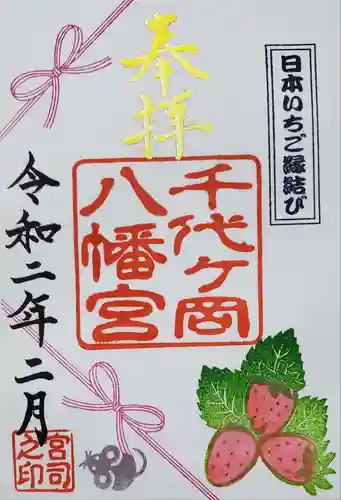 日本いちご縁結び
奉拝
千代ヶ岡
八幡宮
令和二年二月
宮司
之印